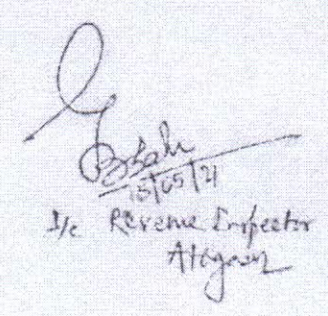 15/05/21
I/c Revenue Inspector
Atigaon